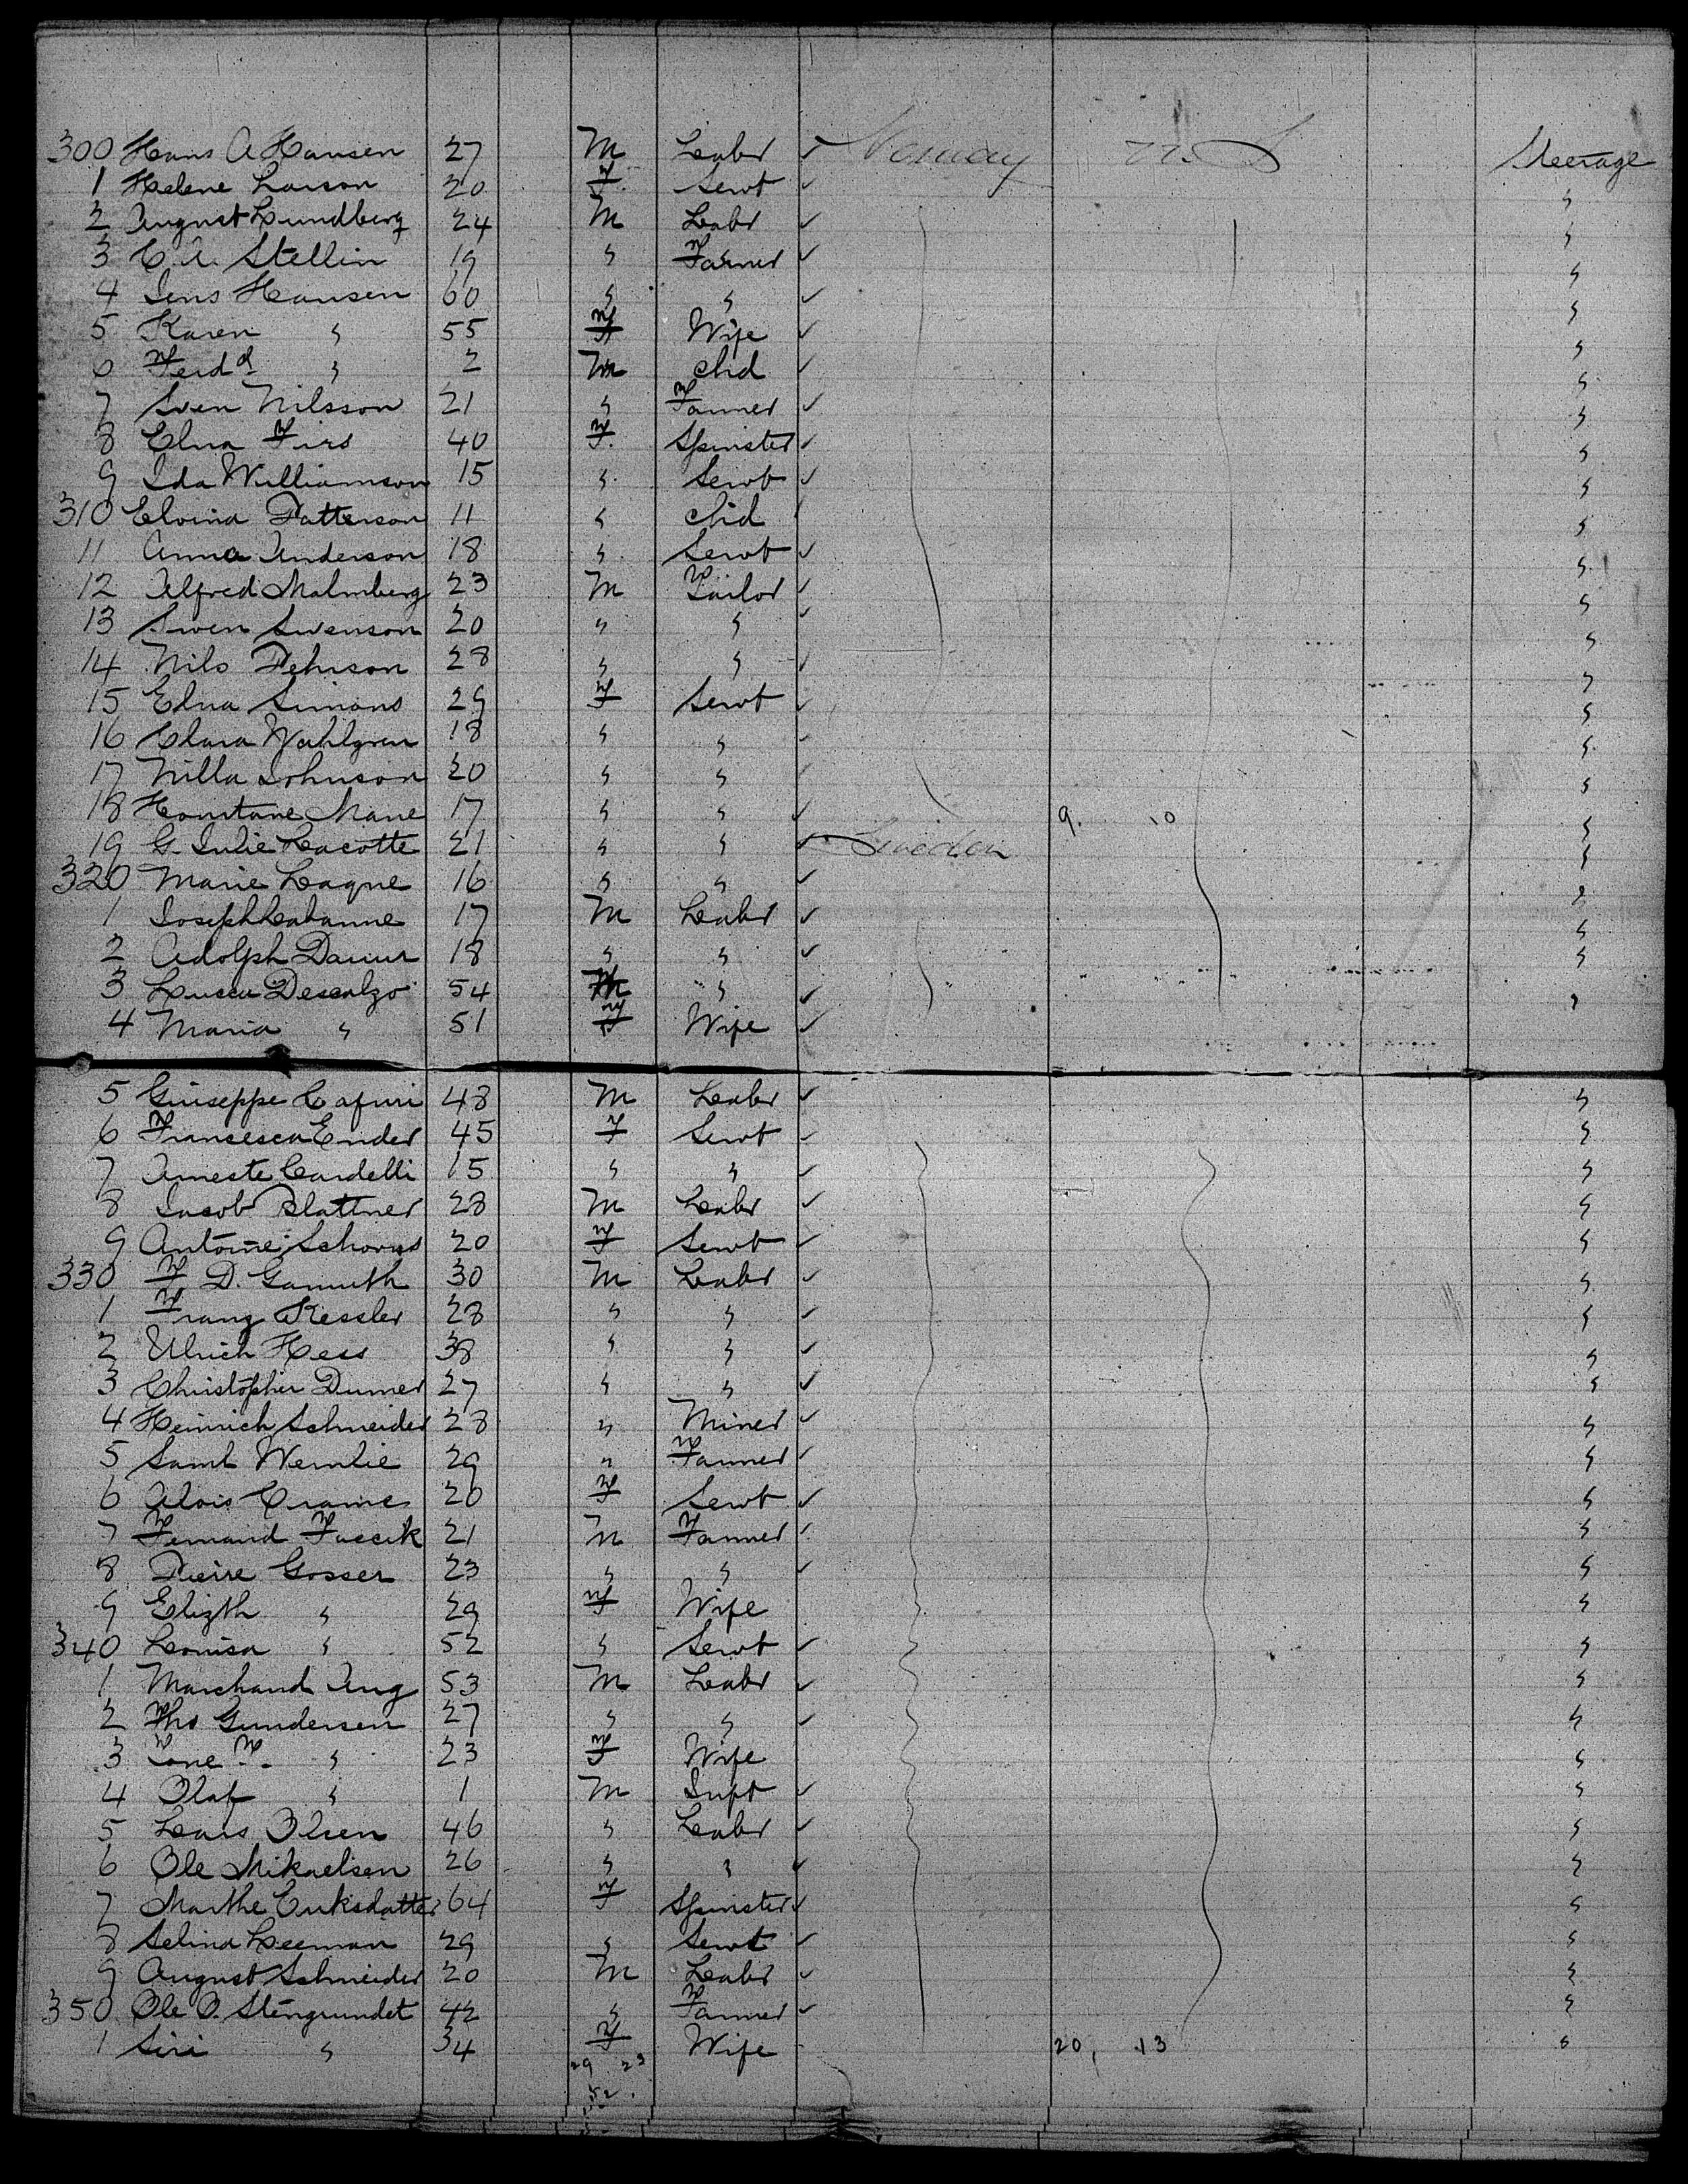 300 Hans A Hansen 27 M Labr ✓ Norway U. S Steerage
1 Helene Larson 20 F. Servt ✓ "
2 August Lundberg 24 M Labr ✓ "
3 C. A. Stellin 19 " Farmer ✓ "
4 Jens Hansen 60 " " ✓ "
5 Karen " 55 F Wife ✓ "
6 Ferdd " 2 M chd ✓ "
7 Sven Nilsson 21 " Farmer ✓ "
8 Elna Firs 40 F. Spinster ✓ "
9 Ida Williamson 15 " Servt ✓ "
310 Elvina Patterson 11 " chd "
11 Anna Anderson 18 " Servt ✓ "
12 Alfred Malmberg 23 M Tailor ✓ "
13 Swen Swenson 20 " " ✓ "
14 Nils Pehrson 28 " " ✓ "
15 Elna Simons 29 F Servt ✓ "
16 Clara Wahlgren 18 " " ✓ "
17 Nilla Johnson 20 " " ✓ "
18 Marie 17 " " ✓ 9. 10 "
19 G. Julie Lacotte 21 " " ✓ Sweden "
320 Marie Lagne 16 " " ✓ "
1 Joseph Labanne 17 M Labr ✓ "
2 Adolph 18 " " ✓ "
3 Descalzo 54 M " ✓ "
4 Maria " 51 F Wife ✓
5 Giuseppe Cafuri 48 M Labr ✓ "
6 Francesca Ender 45 F Servt ✓ "
7 Arneste Cardelli 15 " " ✓ "
8 Jacob Plattner 28 M Labr ✓ "
9 Antoine 20 F Servt ✓ "
330 F D. Gamuth 30 M Labr ✓ "
1 Franz Kessler 28 " " ✓ "
2 Ulrich Hess 38 " " ✓ "
3 Christopher Dumer 27 " " ✓ "
4 Heinrich Schneider 28 " Miner ✓ "
5 Saml Wernlie 29 " Farmer ✓ "
6 Alois Crame 20 F Servt ✓ "
7 Fernand Faccik 21 M Farmer ✓ "
8 Pierre Gosser 23 " " ✓ "
9 Elizth " 29 F Wife "
340 Louisa " 52 " Servt ✓ "
1 Marchand Aug 53 M Labr ✓ "
2 Ths Gundersen 27 " " ✓ "
3 Tone T. " 23 F Wife "
4 Olaf " 1 M Inft ✓ "
5 Lars Olsen 46 " Labr ✓ "
6 Ole Mikaelsen 26 " " ✓ "
7 Marthe Eriksdatter 64 F Spinster ✓ "
8 Selina Leeman 29 " Servt ✓ "
9 August Schneider 20 M Labr ✓ "
350 Ole O. Stengrundet 42 " Farmer ✓ "
1 Siri " 34 F Wife 20, 13 "
29 23
52.